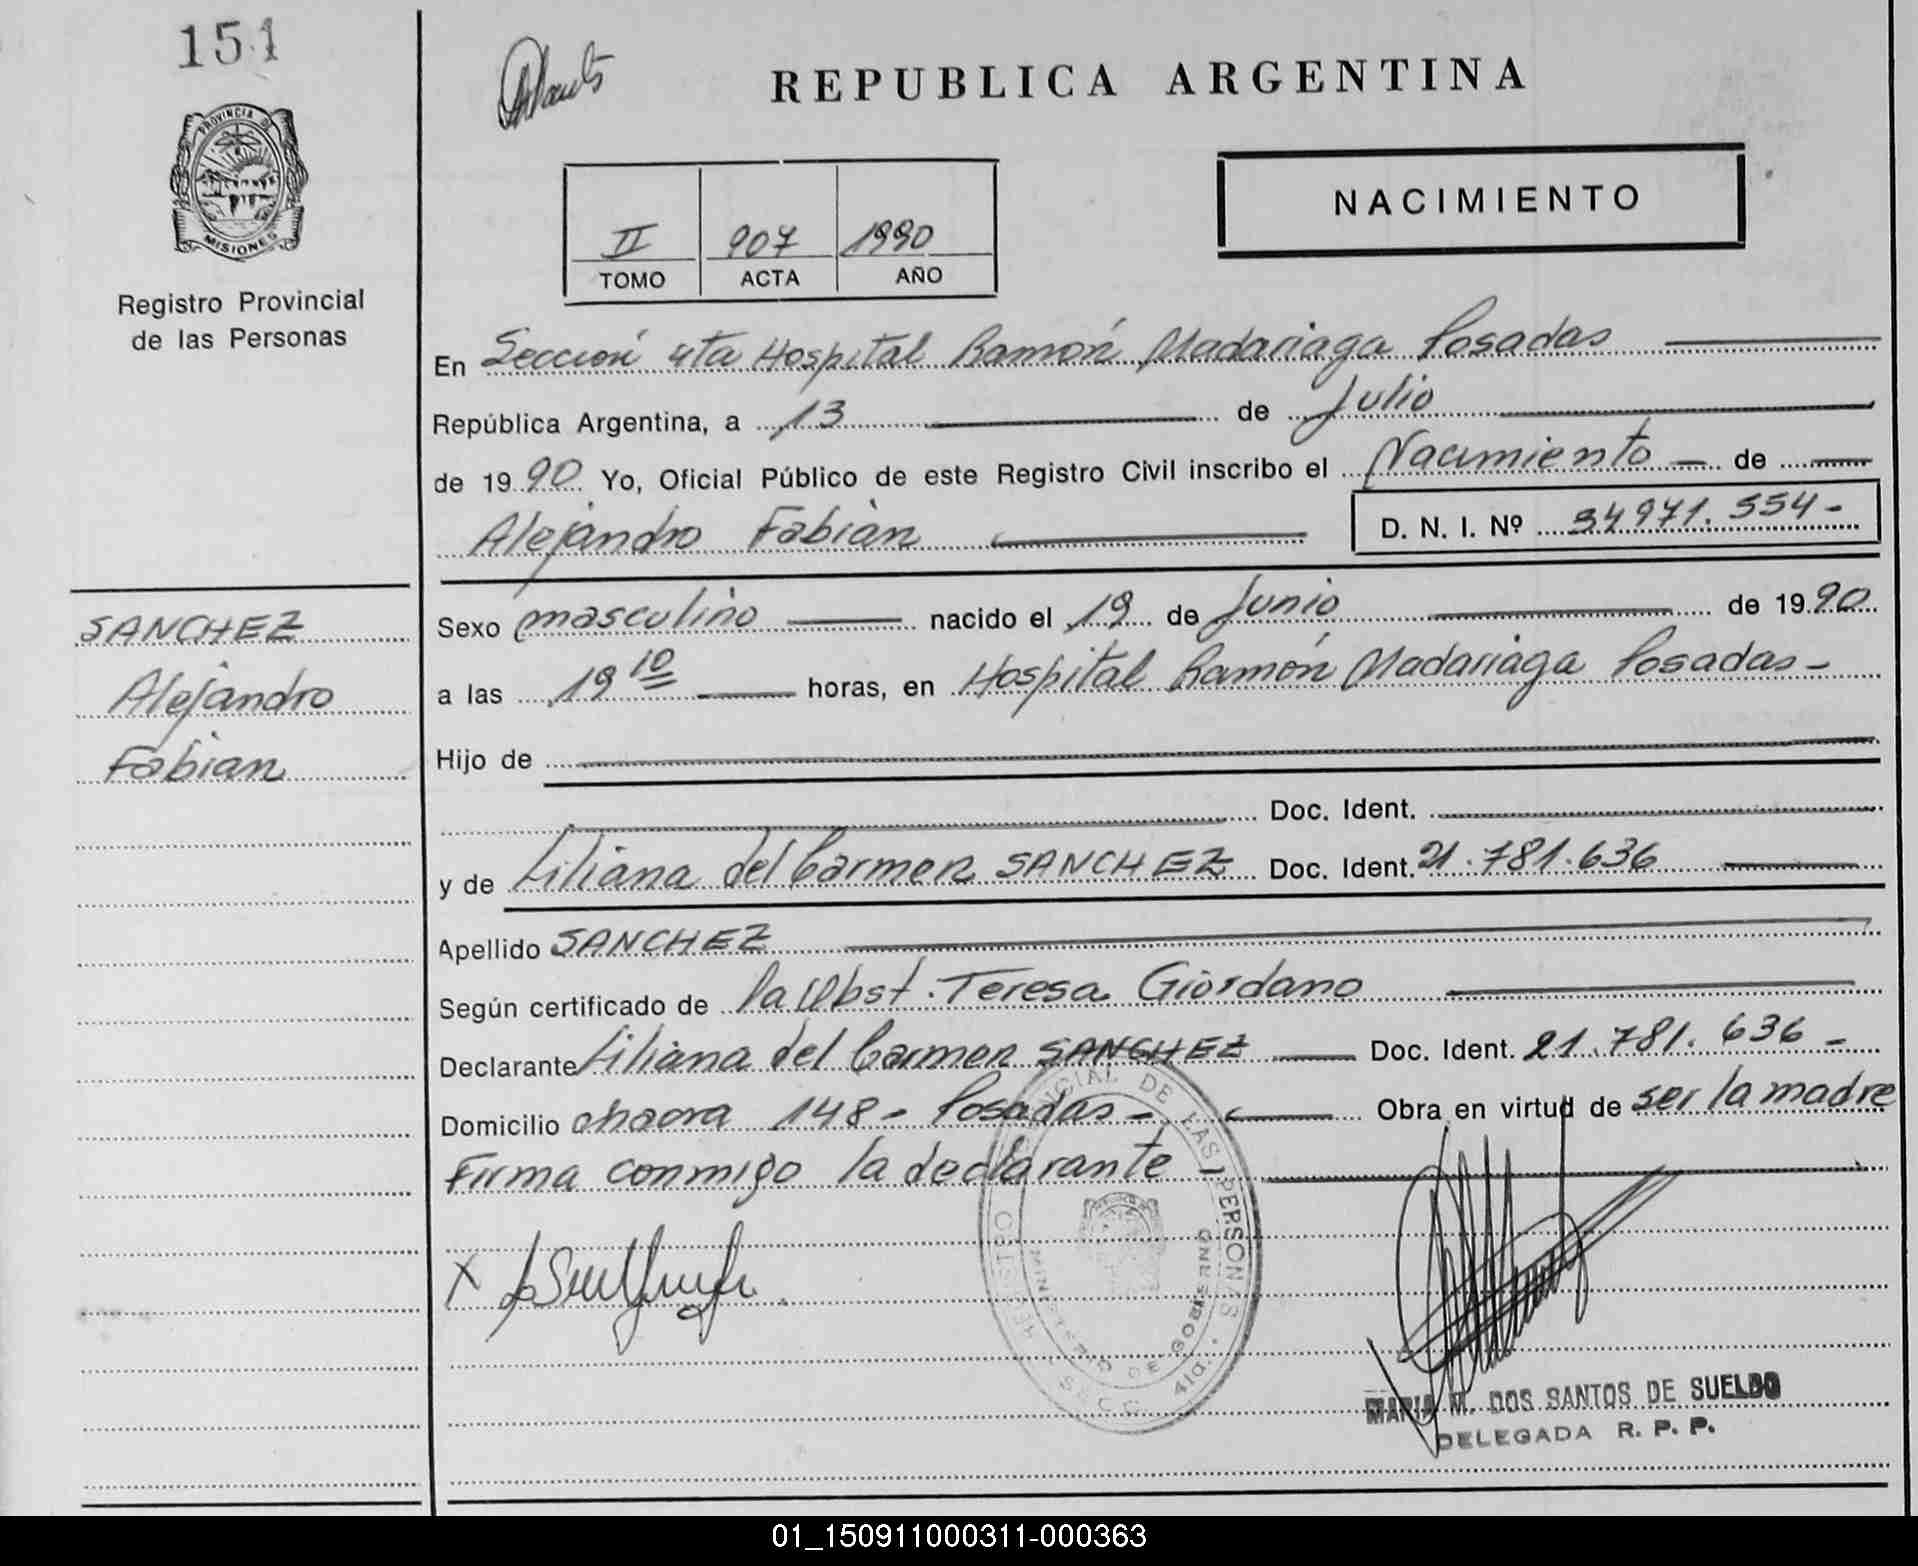 151
REPUBLICA ARGENTINA
PROVINCIA DE
MISIONES
NACIMIENTO
II 907 1990
TOMO ACTA AÑO
Registro Provincial
de las Personas
En Sección 4ta Hospital Ramón Madariaga Posadas
República Argentina, a 13 de Julio
de 1990 Yo, Oficial Público de este Registro Civil inscribo el Nacimiento de
Alejandro Fabián D. N. I. Nº 34971.554-
SANCHEZ
Alejandro
Fabian
Sexo masculino nacido el 19 de Junio de 1990
a las 19 10 horas, en Hospital Ramón Madariaga Posadas-
Hijo de
Doc. Ident.
y de Liliana del Carmen SANCHEZ Doc. Ident. 21.781.636
Apellido SANCHEZ
Según certificado de la Obst. Teresa Giordano
Declarante Liliana del Carmen SANCHEZ Doc. Ident. 21.781.636-
Domicilio chacra 148- Posadas- Obra en virtud de ser la madre
Firma conmigo la declarante
X
REGISTRO PROVINCIAL DE LAS PERSONAS
MINISTERIO DE GOBIERNO
SECC. 4ta.
MARIA M. DOS SANTOS DE SUELDO
DELEGADA R. P. P.
01_150911000311-000363